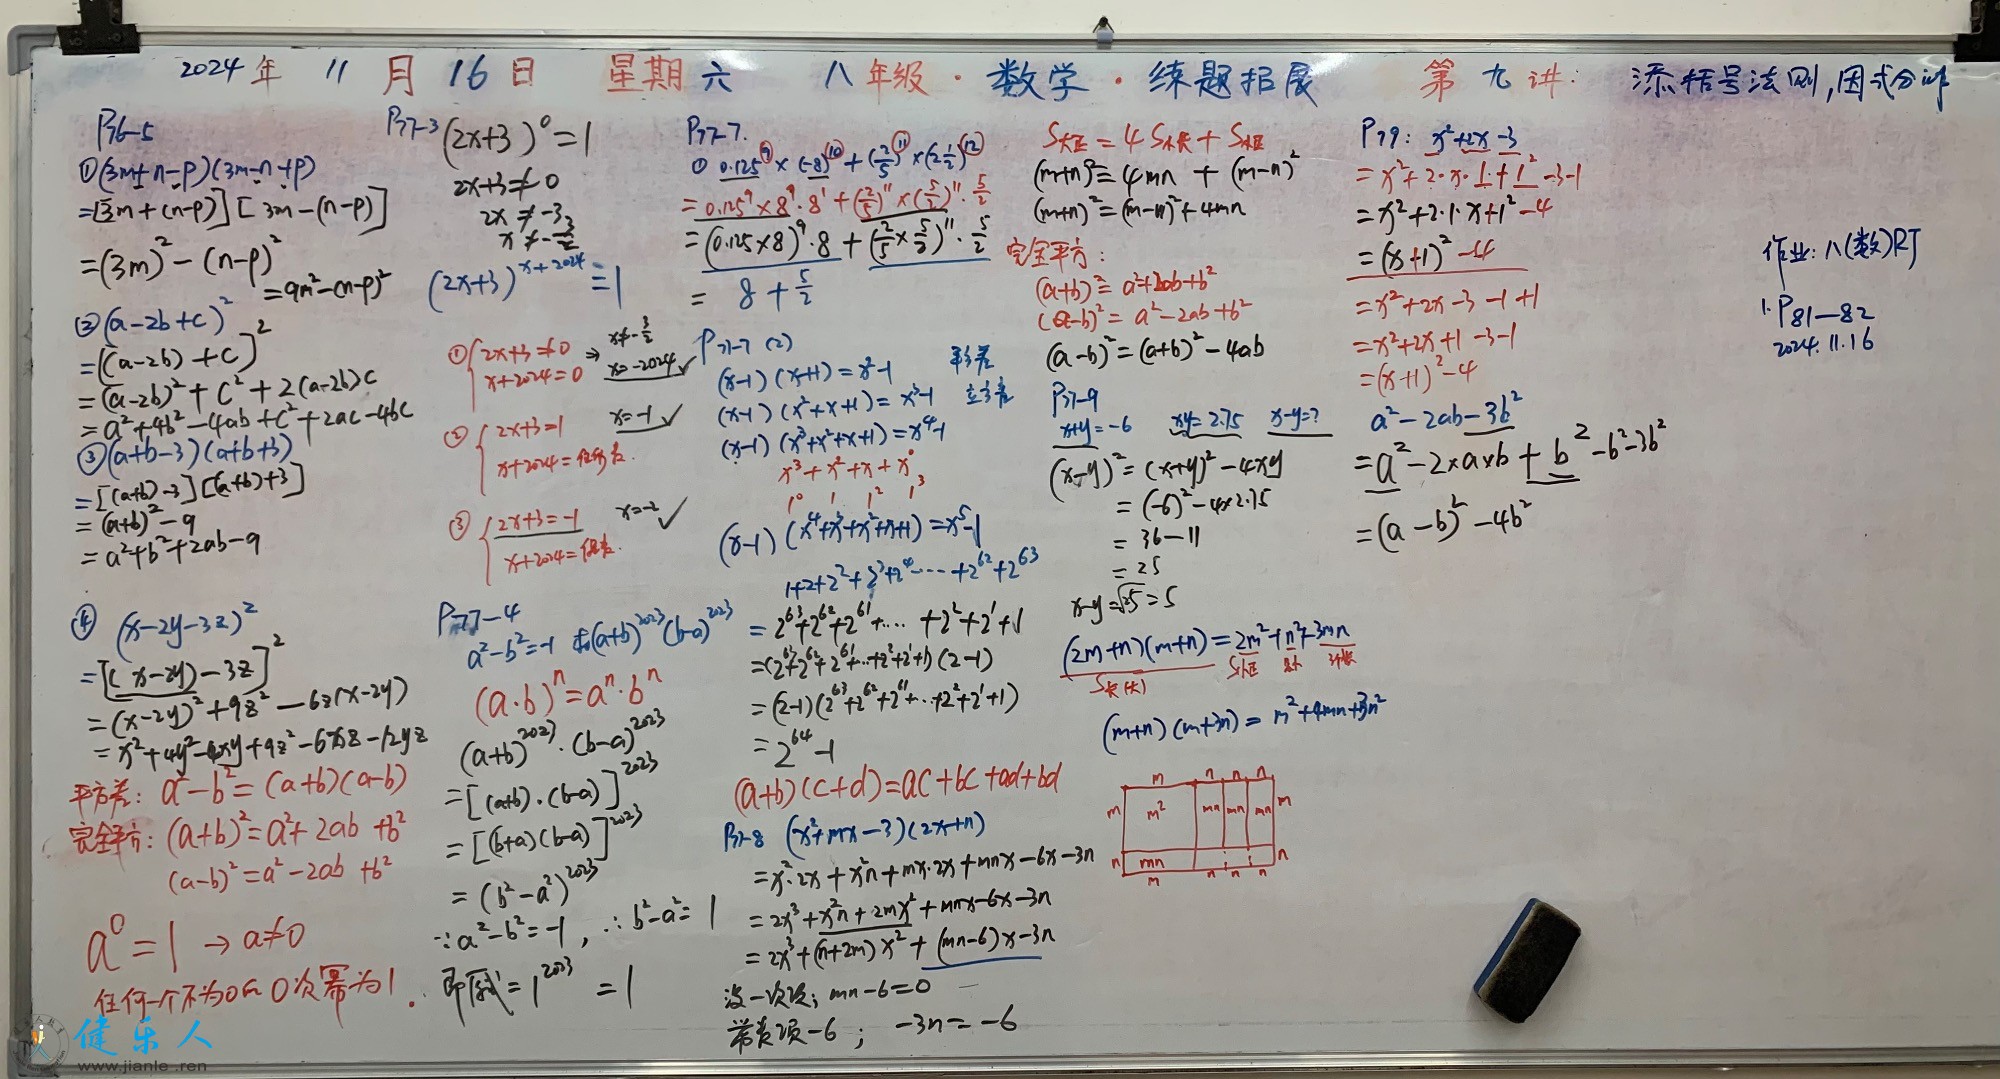 2024年 11月 16日 星期六 八年级·数学·练题拓展 第九讲: 添括号法则,因式分解
P76-5
①(3m+n-p)(3m-n+p)
=[3m+(n-p)][3m-(n-p)]
=(3m)²-(n-p)²
=9m²-(n-p)²
②(a-2b+c)²
=[(a-2b)+c]²
=(a-2b)²+c²+2(a-2b)c
=a²+4b²-4ab+c²+2ac-4bc
③(a+b-3)(a+b+3)
=[(a+b)-3][(a+b)+3]
=(a+b)²-9
=a²+b²+2ab-9
④ (x-2y-3z)²
=[(x-2y)-3z]²
=(x-2y)²+9z²-6z(x-2y)
=x²+4y²-4xy+9z²-6xz-12yz
平方差: a²-b²=(a+b)(a-b)
完全平方: (a+b)²=a²+2ab+b²
(a-b)²=a²-2ab+b²
a⁰=1 → a≠0
任何一个不为0的0次幂为1.
P77-3 (2x+3)⁰=1
2x+3≠0
2x≠-3
x≠-3/2
(2x+3)^(x+2024)=1
① { 2x+3≠0 → x≠-3/2
x+2024=0 x=-2024 ✓
② { 2x+3=1 x=-1 ✓
x+2024=任意数.
③ { 2x+3=-1 x=-2 ✓
x+2024=偶数.
P77-4
a²-b²=-1 求(a+b)²⁰²³(b-a)²⁰²³
(a·b)ⁿ=aⁿ·bⁿ
(a+b)²⁰²³·(b-a)²⁰²³
=[(a+b)·(b-a)]²⁰²³
=[(b+a)(b-a)]²⁰²³
=(b²-a²)²⁰²³
∵a²-b²=-1, ∴b²-a²=1
即原式=1²⁰²³=1
P77-7.
① 0.125⁹×(-8)¹⁰+(2/5)¹¹×(2½)¹²
=0.125⁹×8⁹·8¹+(2/5)¹¹×(5/2)¹¹·5/2
=(0.125×8)⁹·8+(2/5×5/2)¹¹·5/2
= 8+5/2
P77-7 (2)
(x-1)(x+1)=x²-1 平方差
(x-1)(x²+x+1)=x³-1 立方差
(x-1)(x³+x²+x+1)=x⁴-1
x³+x²+x+x⁰
1⁰ 1¹ 1² 1³
(x-1)(x⁴+x³+x²+x+1)=x⁵-1
1+2+2²+2³+2⁴……+2⁶²+2⁶³
=2⁶³+2⁶²+2⁶¹+……+2²+2¹+1
=(2⁶³+2⁶²+2⁶¹+…+2²+2¹+1)(2-1)
=(2-1)(2⁶³+2⁶²+2⁶¹+…+2²+2¹+1)
=2⁶⁴-1
(a+b)(c+d)=ac+bc+ad+bd
P77-8 (x²+mx-3)(2x+n)
=x²·2x+x²n+mx·2x+mnx-6x-3n
=2x³+x²n+2mx²+mnx-6x-3n
=2x³+(n+2m)x²+(mn-6)x-3n
没一次项; mn-6=0
常数项-6; -3n=-6
S大正=4S小长+S小正
(m+n)²=4mn+(m-n)²
(m+n)²=(m-n)²+4mn
完全平方:
(a+b)²=a²+2ab+b²
(a-b)²=a²-2ab+b²
(a-b)²=(a+b)²-4ab
P77-9
x+y=-6 xy=2.75 x-y=?
(x-y)²=(x+y)²-4xy
=(-6)²-4×2.75
=36-11
=25
x-y=√25=5
(2m+n)(m+n)=2m²+n²+3mn
S长(大) S大正 3小长
(m+n)(m+3n)=m²+4mn+3n²
m n n n
m m² mn mn mn m
n mn n
m n n n
P79: x²+2x-3
=x²+2·x·1+1²-3-1
=x²+2·1·x+1²-4
=(x+1)²-4
=x²+2x-3-1+1
=x²+2x+1-3-1
=(x+1)²-4
a²-2ab-3b²
=a²-2×a×b+b²-b²-3b²
=(a-b)²-4b²
作业: 八(数)RJ
1.P81—82
2024.11.16
健乐人
www.jianle.ren